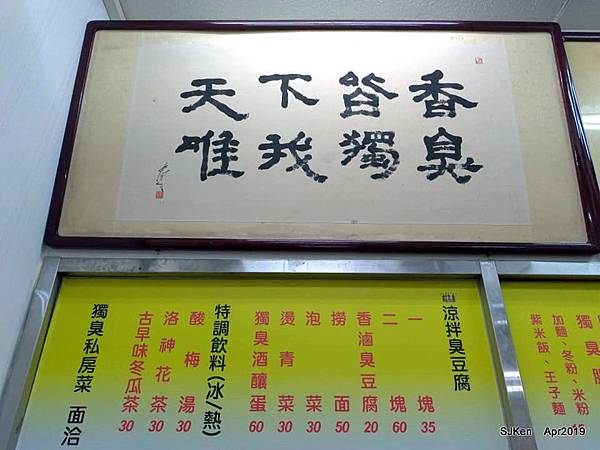 天下皆香
唯我獨臭
加麵、冬粉、米粉
紫米飯、王子麵
涼拌臭豆腐
一塊 35
二塊 60
香滷臭豆腐 20
撈麵 50
泡菜 30
燙青菜 30
獨臭酒釀蛋 60
特調飲料(冰/熱)
酸梅湯 30
洛神花茶 30
古早味冬瓜茶 30
獨臭私房菜 面洽
SJKen Apr2019